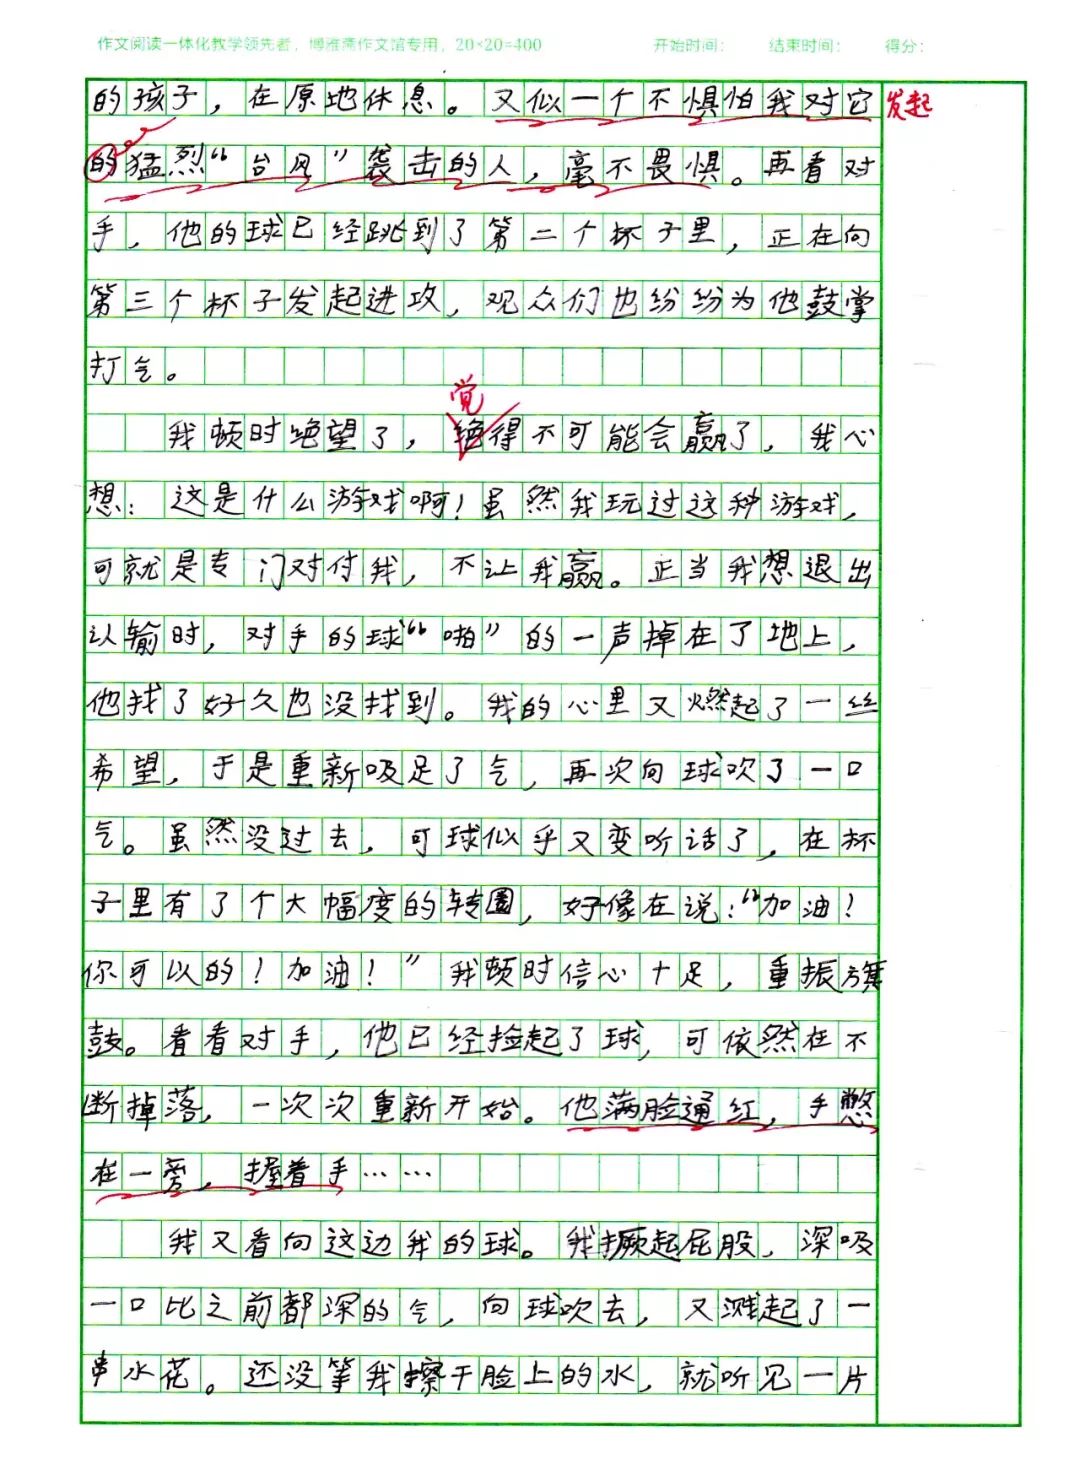 作文阅读一体化教学领先者，博雅斋作文馆专用，20×20=400 开始时间： 结束时间： 得分：
的孩子，在原地休息。又似一个不惧怕我对它 发起
的猛烈“台风”袭击的人，毫不畏惧。再看对
手，他的球已经跳到了第二个杯子里，正在向
第三个杯子发起进攻，观众们也纷纷为他鼓掌
打气。
觉
我顿时绝望了，绝得不可能会赢了，我心
想：这是什么游戏啊！虽然我玩过这种游戏，
可就是专门对付我，不让我赢。正当我想退出
认输时，对手的球“啪”的一声掉在了地上，
他找了好久也没找到。我的心里又燃起了一丝
希望，于是重新吸足了气，再次向球吹了一口
气。虽然没过去，可球似乎又变听话了，在杯
子里有了个大幅度的转圈，好像在说：“加油！
你可以的！加油！”我顿时信心十足，重振旗
鼓。看看对手，他已经捡起了球，可依然在不
断掉落，一次次重新开始。他满脸通红，手憋
在一旁，握着手……
我又看向这边我的球。我撅起屁股，深吸
一口比之前都深的气，向球吹去，又溅起了一
串水花。还没等我擦干脸上的水，就听见一片